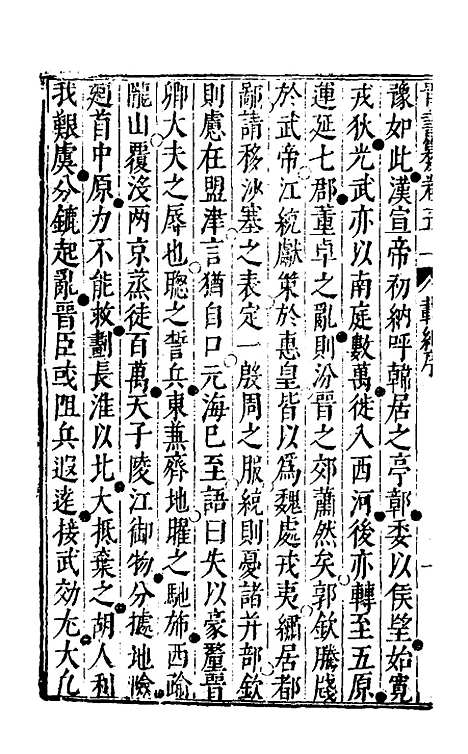 豫如此漢宣帝初納呼韓居之亭鄣委以侯望如寬
戎狄光武亦以南庭數萬徙入西河後亦轉至五原
連延七郡董卓之亂則汾晉之郊蕭然矣郭欽騰牋
於武帝江統獻策於惠皇皆以爲魏處戎夷繡居都
鄙請移沙塞之表定一殷周之服統則憂諸并部欽
則慮在盟津言猶自口元海已至語曰失以豪釐晉
卿大夫之辱也聰之誓兵東兼齊地曜之馳斾西踰
隴山覆沒两京蒸徒百萬天子陵江御物分據地險
廻首中原力不能救劃長淮以北大抵棄之胡人利
我艱虞分鑣起亂晉臣或阻兵遐遠接武効尤大凡